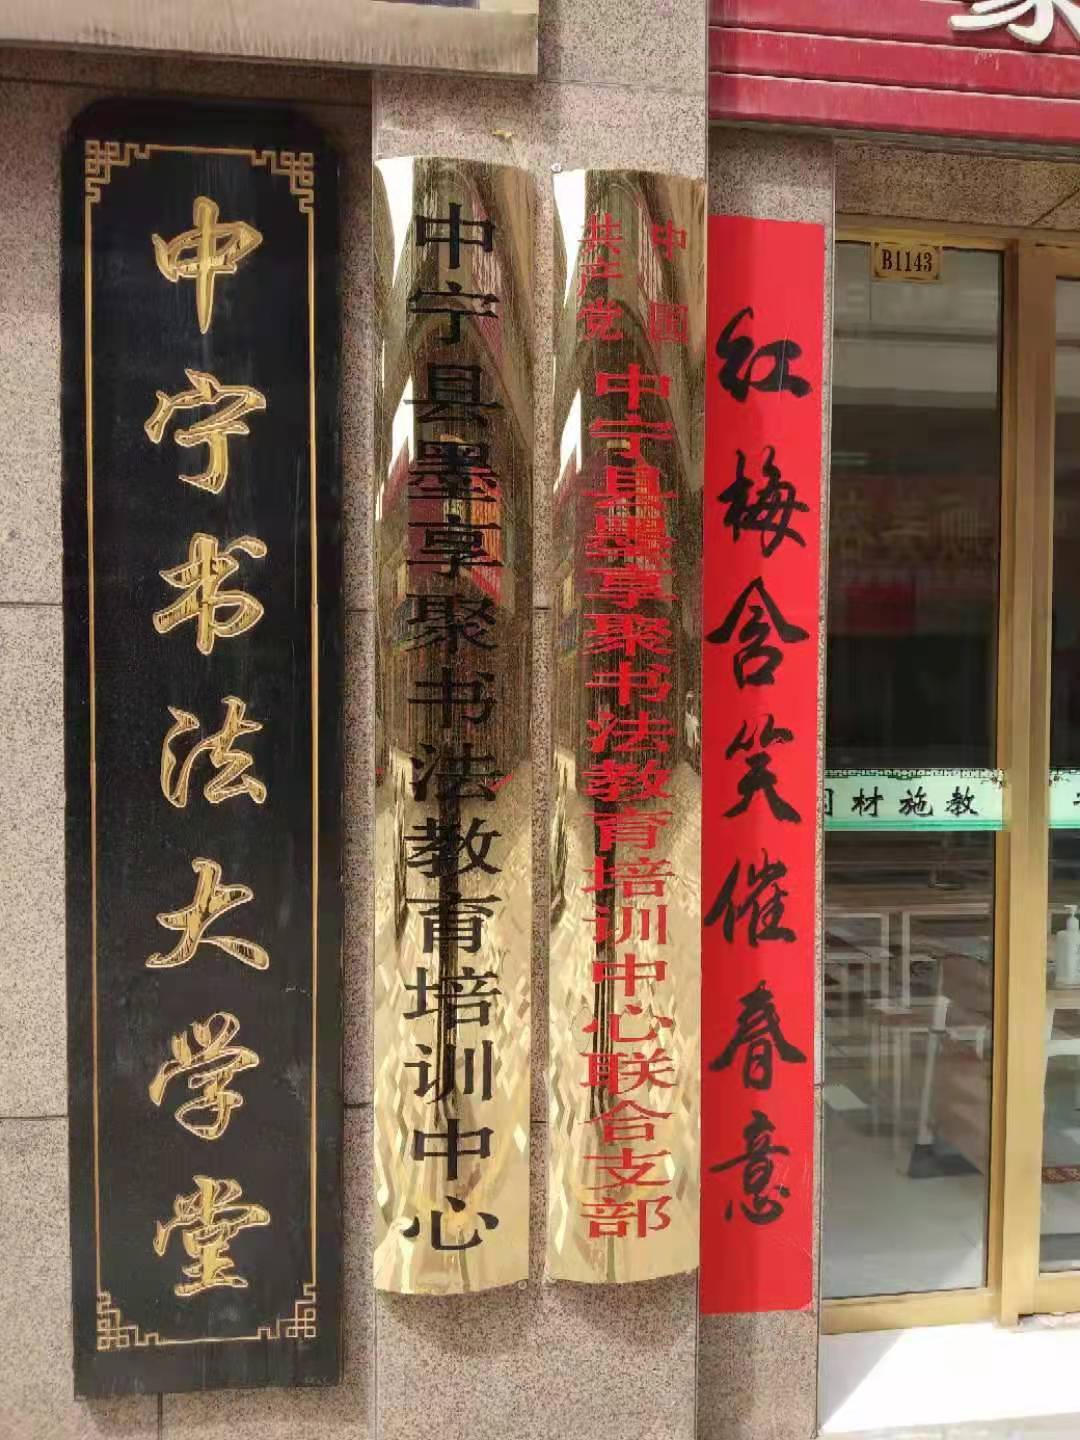 中宁书法大学堂
中宁县墨享聚书法教育培训中心
中国
共产党
中宁县墨享聚书法教育培训中心联合支部
红梅含笑催春意
B1143
教施材